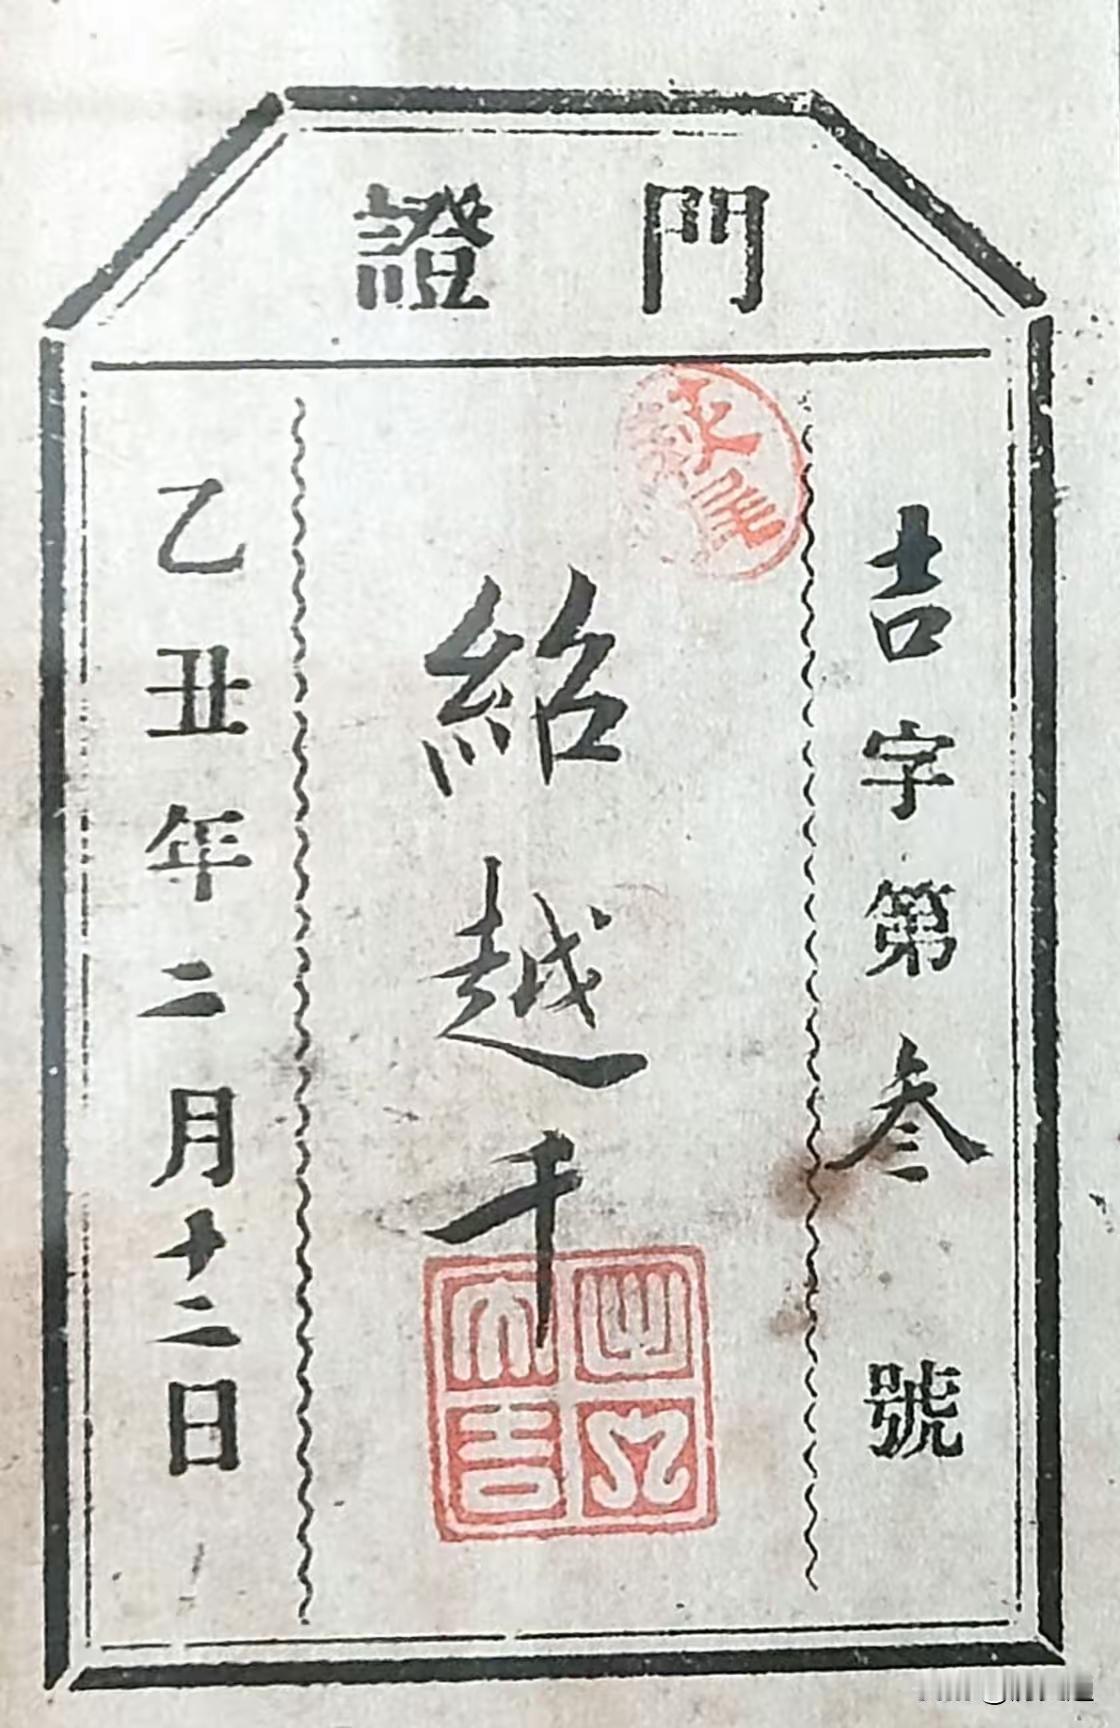 門證
吉字第叁號
紹越千
出入大吉
乙丑年二月十二日